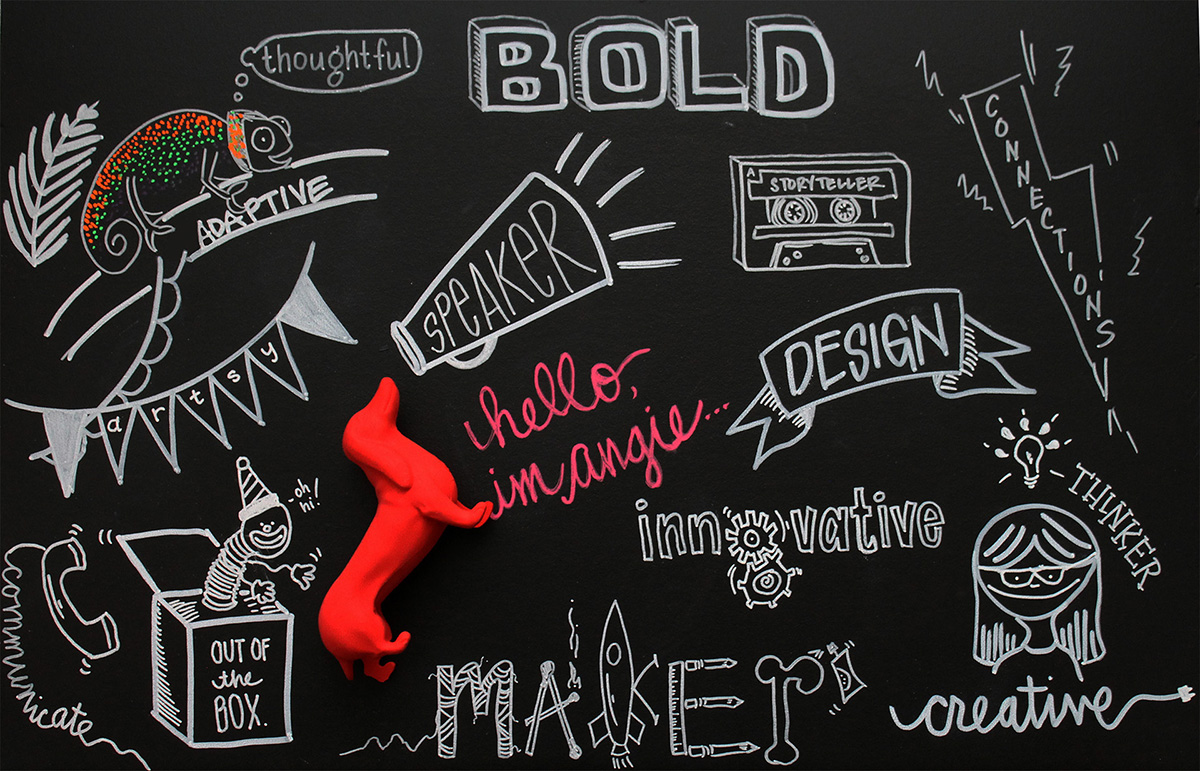 thoughtful
BOLD
ADAPTIVE
SPEAKER
A
STORYTELLER
CONNECTIONS
DESIGN
artsy
hello,
im angie...
oh
hi!
innovative
THINKER
communicate
OUT OF
the
BOX.
MAKER
creative